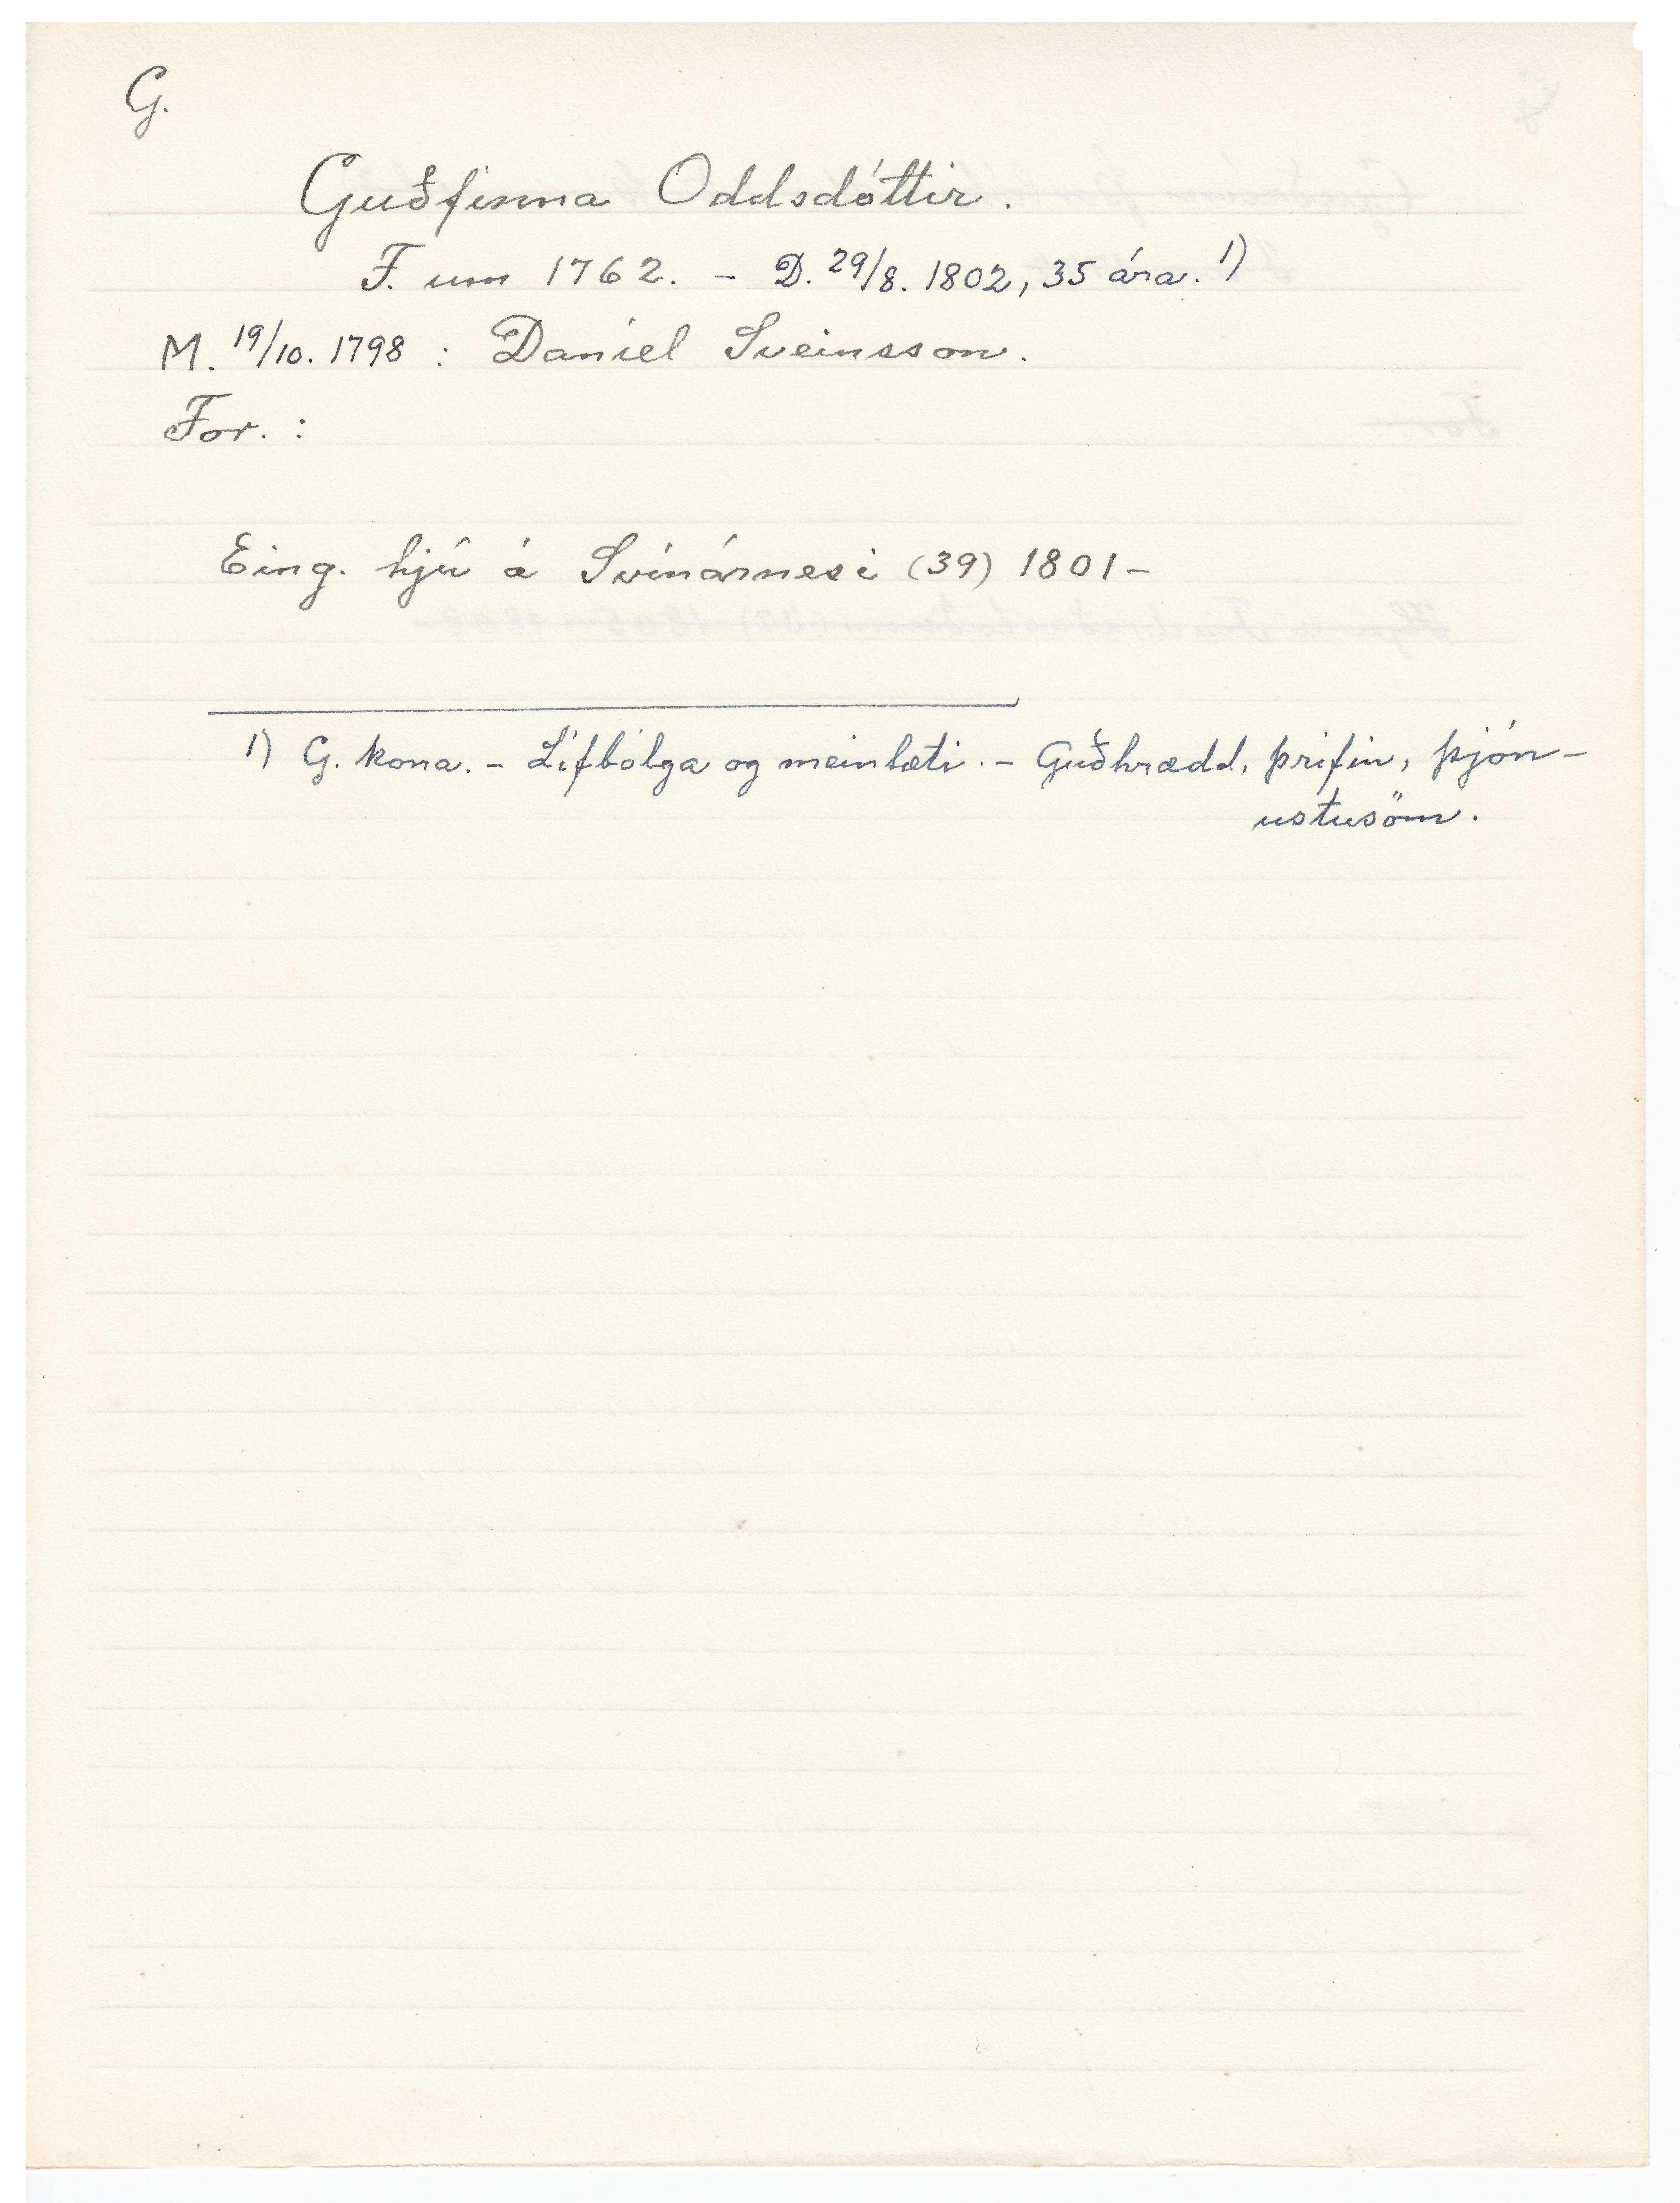 G.
Guðfinna Oddsdóttir.
F. um 1762. - D. 29/8. 1802, 35 ára. 1)
M. 19/10. 1798 : Daníel Sveinsson.
For. :
Eing. hjú á Svínárnesi (39) 1801-
1) G. kona. - Lífbólga og meinlæti. - Guðhrædd, þrifin, þjón-
ustusöm.